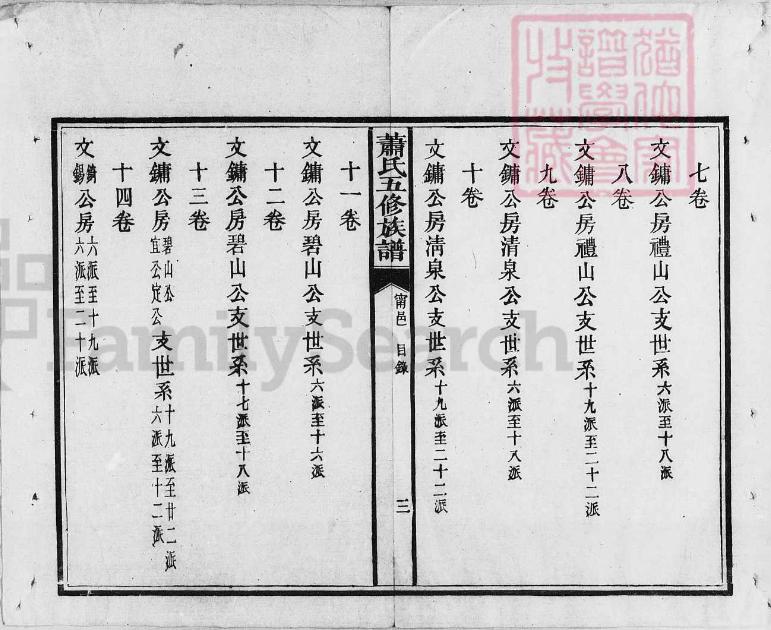 七卷
文鏞公房禮山公支世系六派至十八派
八卷
文鏞公房禮山公支世系十九派至二十二派
九卷
文鏞公房清泉公支世系六派至十八派
十卷
文鏞公房清泉公支世系十九派至二十二派
蕭氏五修族譜
甯邑 目錄
三
十一卷
文鏞公房碧山公支世系六派至十六派
十二卷
文鏞公房碧山公支世系十七派至十八派
十三卷
文鏞公房碧山公宜公定公支世系十九派至廿二派六派至十二派
十四卷
文錫公房六派至十九派六派至二十派
FamilySearch